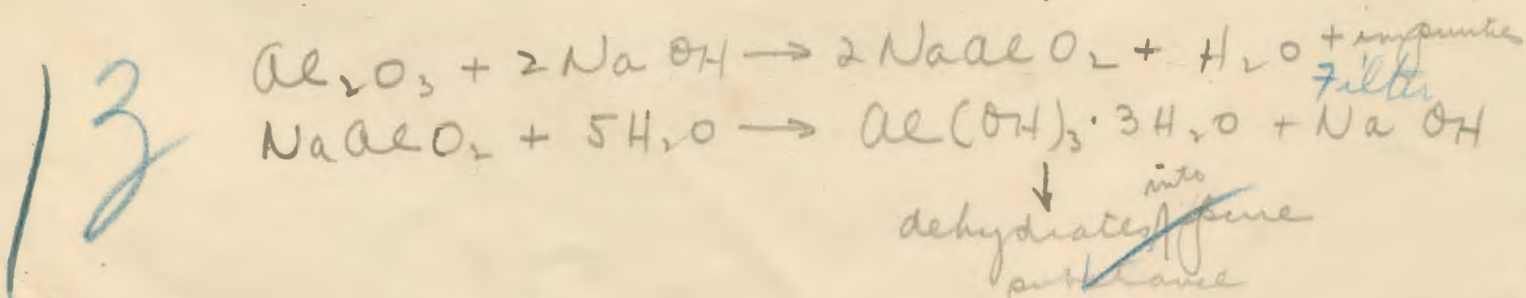 13
Al₂O₃ + 2 Na OH → 2 NaAlO₂ + H₂O + impurities
Filter
NaAlO₂ + 5H₂O → Al(OH)₃·3H₂O + Na OH
↓ into
dehydrates pure
substance